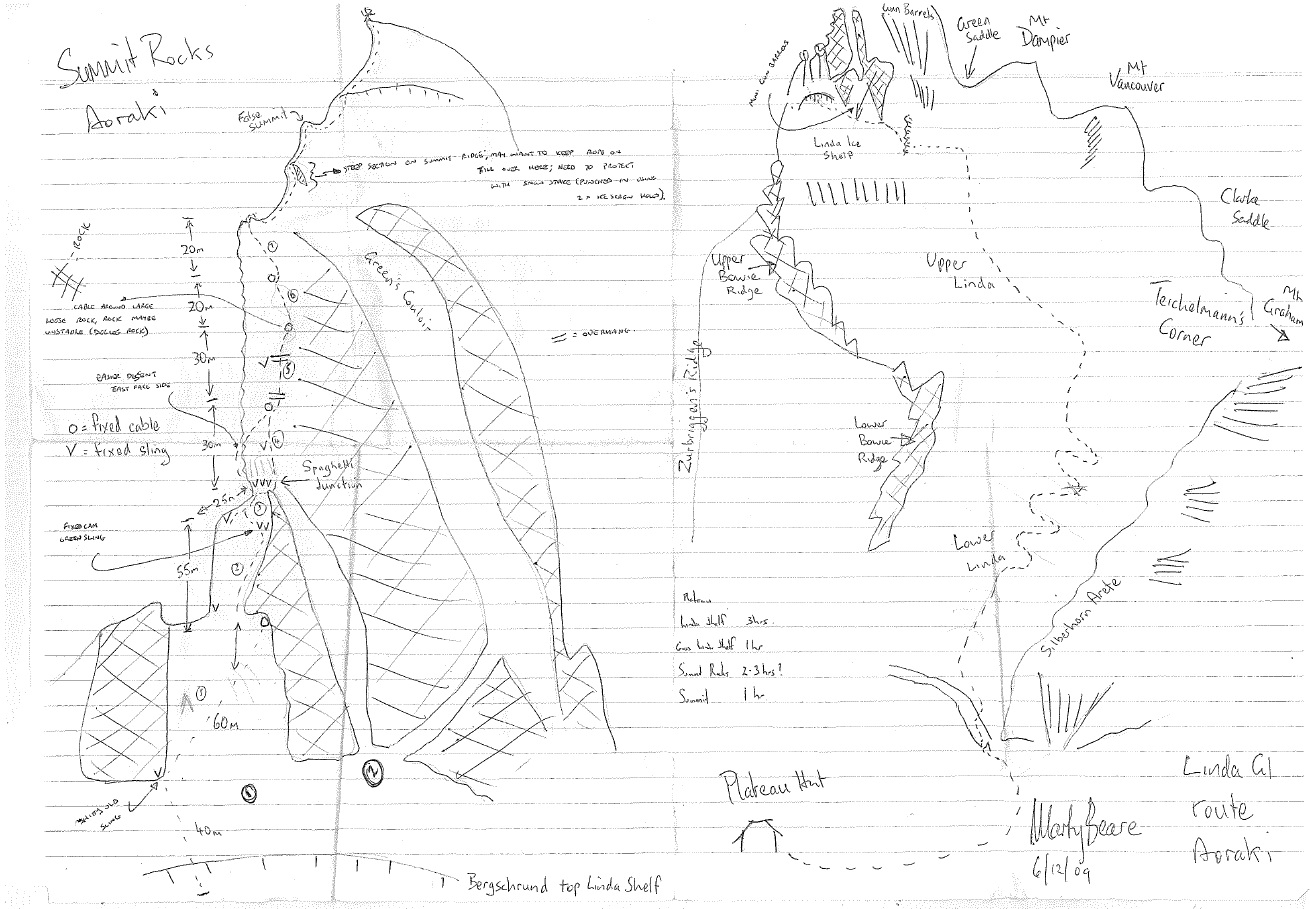 Summit Rocks
Aoraki
False
Summit
STEEP SECTION ON SUMMIT RIDGE, MAY WANT TO KEEP ROPE ON
TILL OVER HERE; NEED TO PROTECT
WITH SNOW STAKE (PUNCHED IN USING
2 x ICE SCREW HOLD).
ROCK
20m
20m
30m
30m
25m
55m
60m
40m
CABLE AROUND LARGE
LOOSE ROCK, ROCK MAYBE
UNSTABLE (DETACHED ROCK)
EASIER DESCENT
EAST FACE SIDE
O = fixed cable
V = fixed sling
= = OVERHANG.
Green's Couloir
Spaghetti
Junction
FIXED CAM
GREEN SLING
7
6
5
4
3
2
1
1
2
OLD
SLING
Bergschrund top Linda Shelf
Gun Barrels
Mini Gun Barrels
Green
Saddle
Mt
Dampier
Mt
Vancouver
Linda Ice
Shelf
Clarke
Saddle
Upper
Bowie
Ridge
Upper
Linda
Teichelmann's
Corner
Mt
Graham
Zurbriggen's Ridge
Lower
Bowie
Ridge
Lower
Linda
Silberhorn Arete
Plateau
Linda Shelf 3hrs.
Cross Linda Shelf 1hr
Summit Rocks 2-3hrs?
Summit 1hr
Plateau Hut
Marty Beare
6/12/09
Linda Gl
route
Aoraki